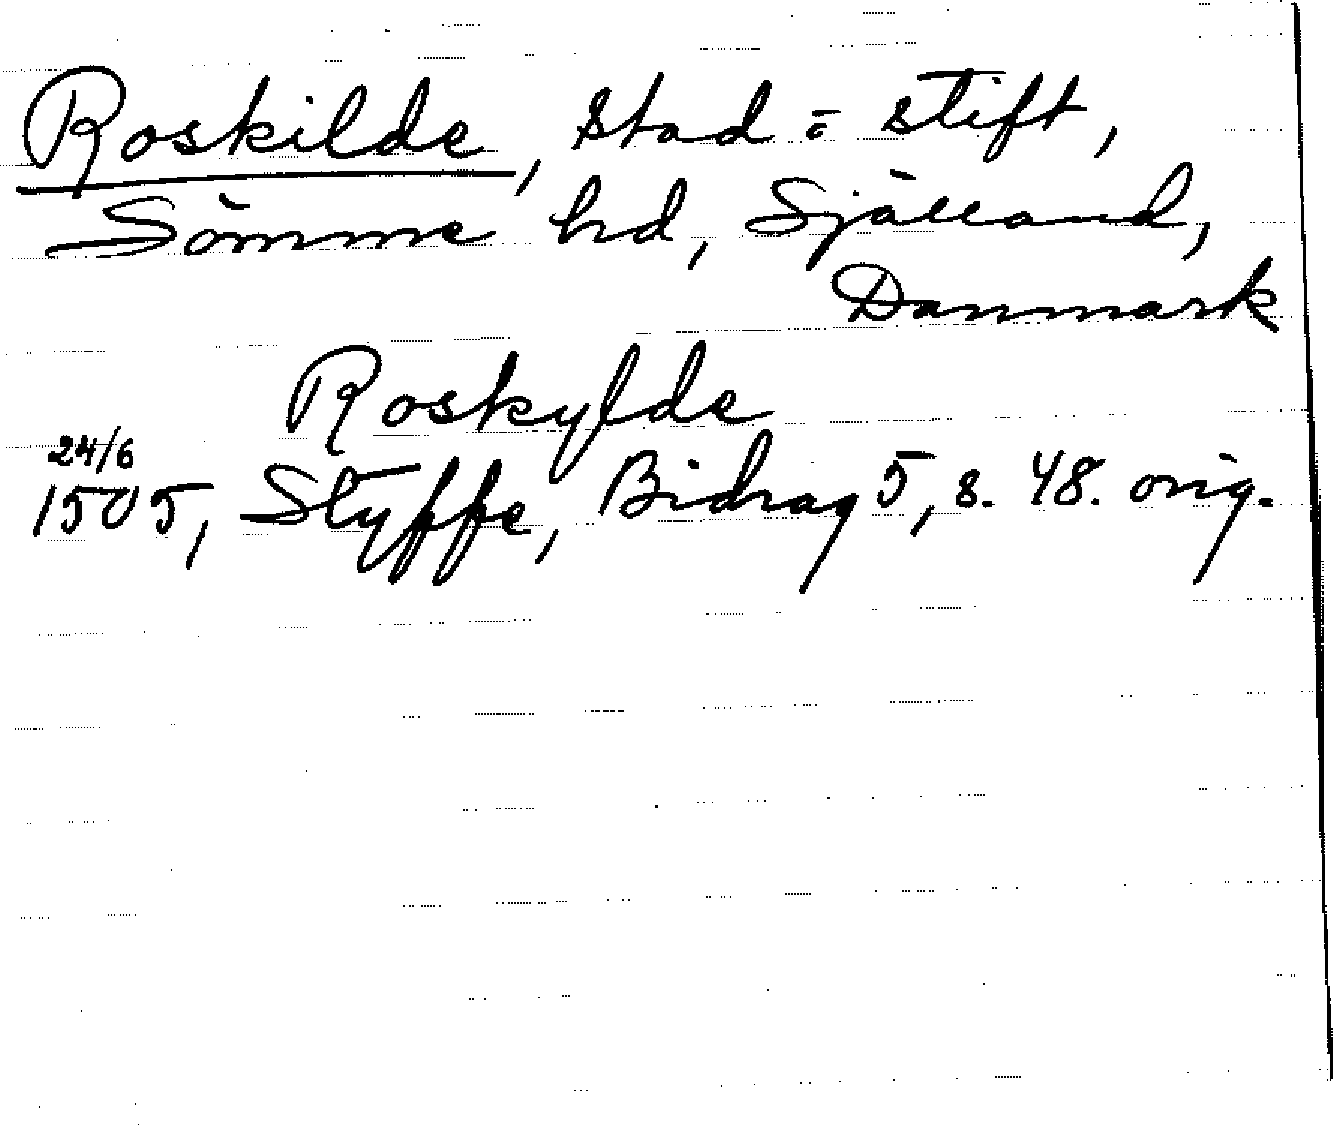 Roskilde, stad o stift,
Sömme hd, Själland,
Danmark
Roskylde
24/6
1505, Styffe, Bidrag 5, s. 48. orig.